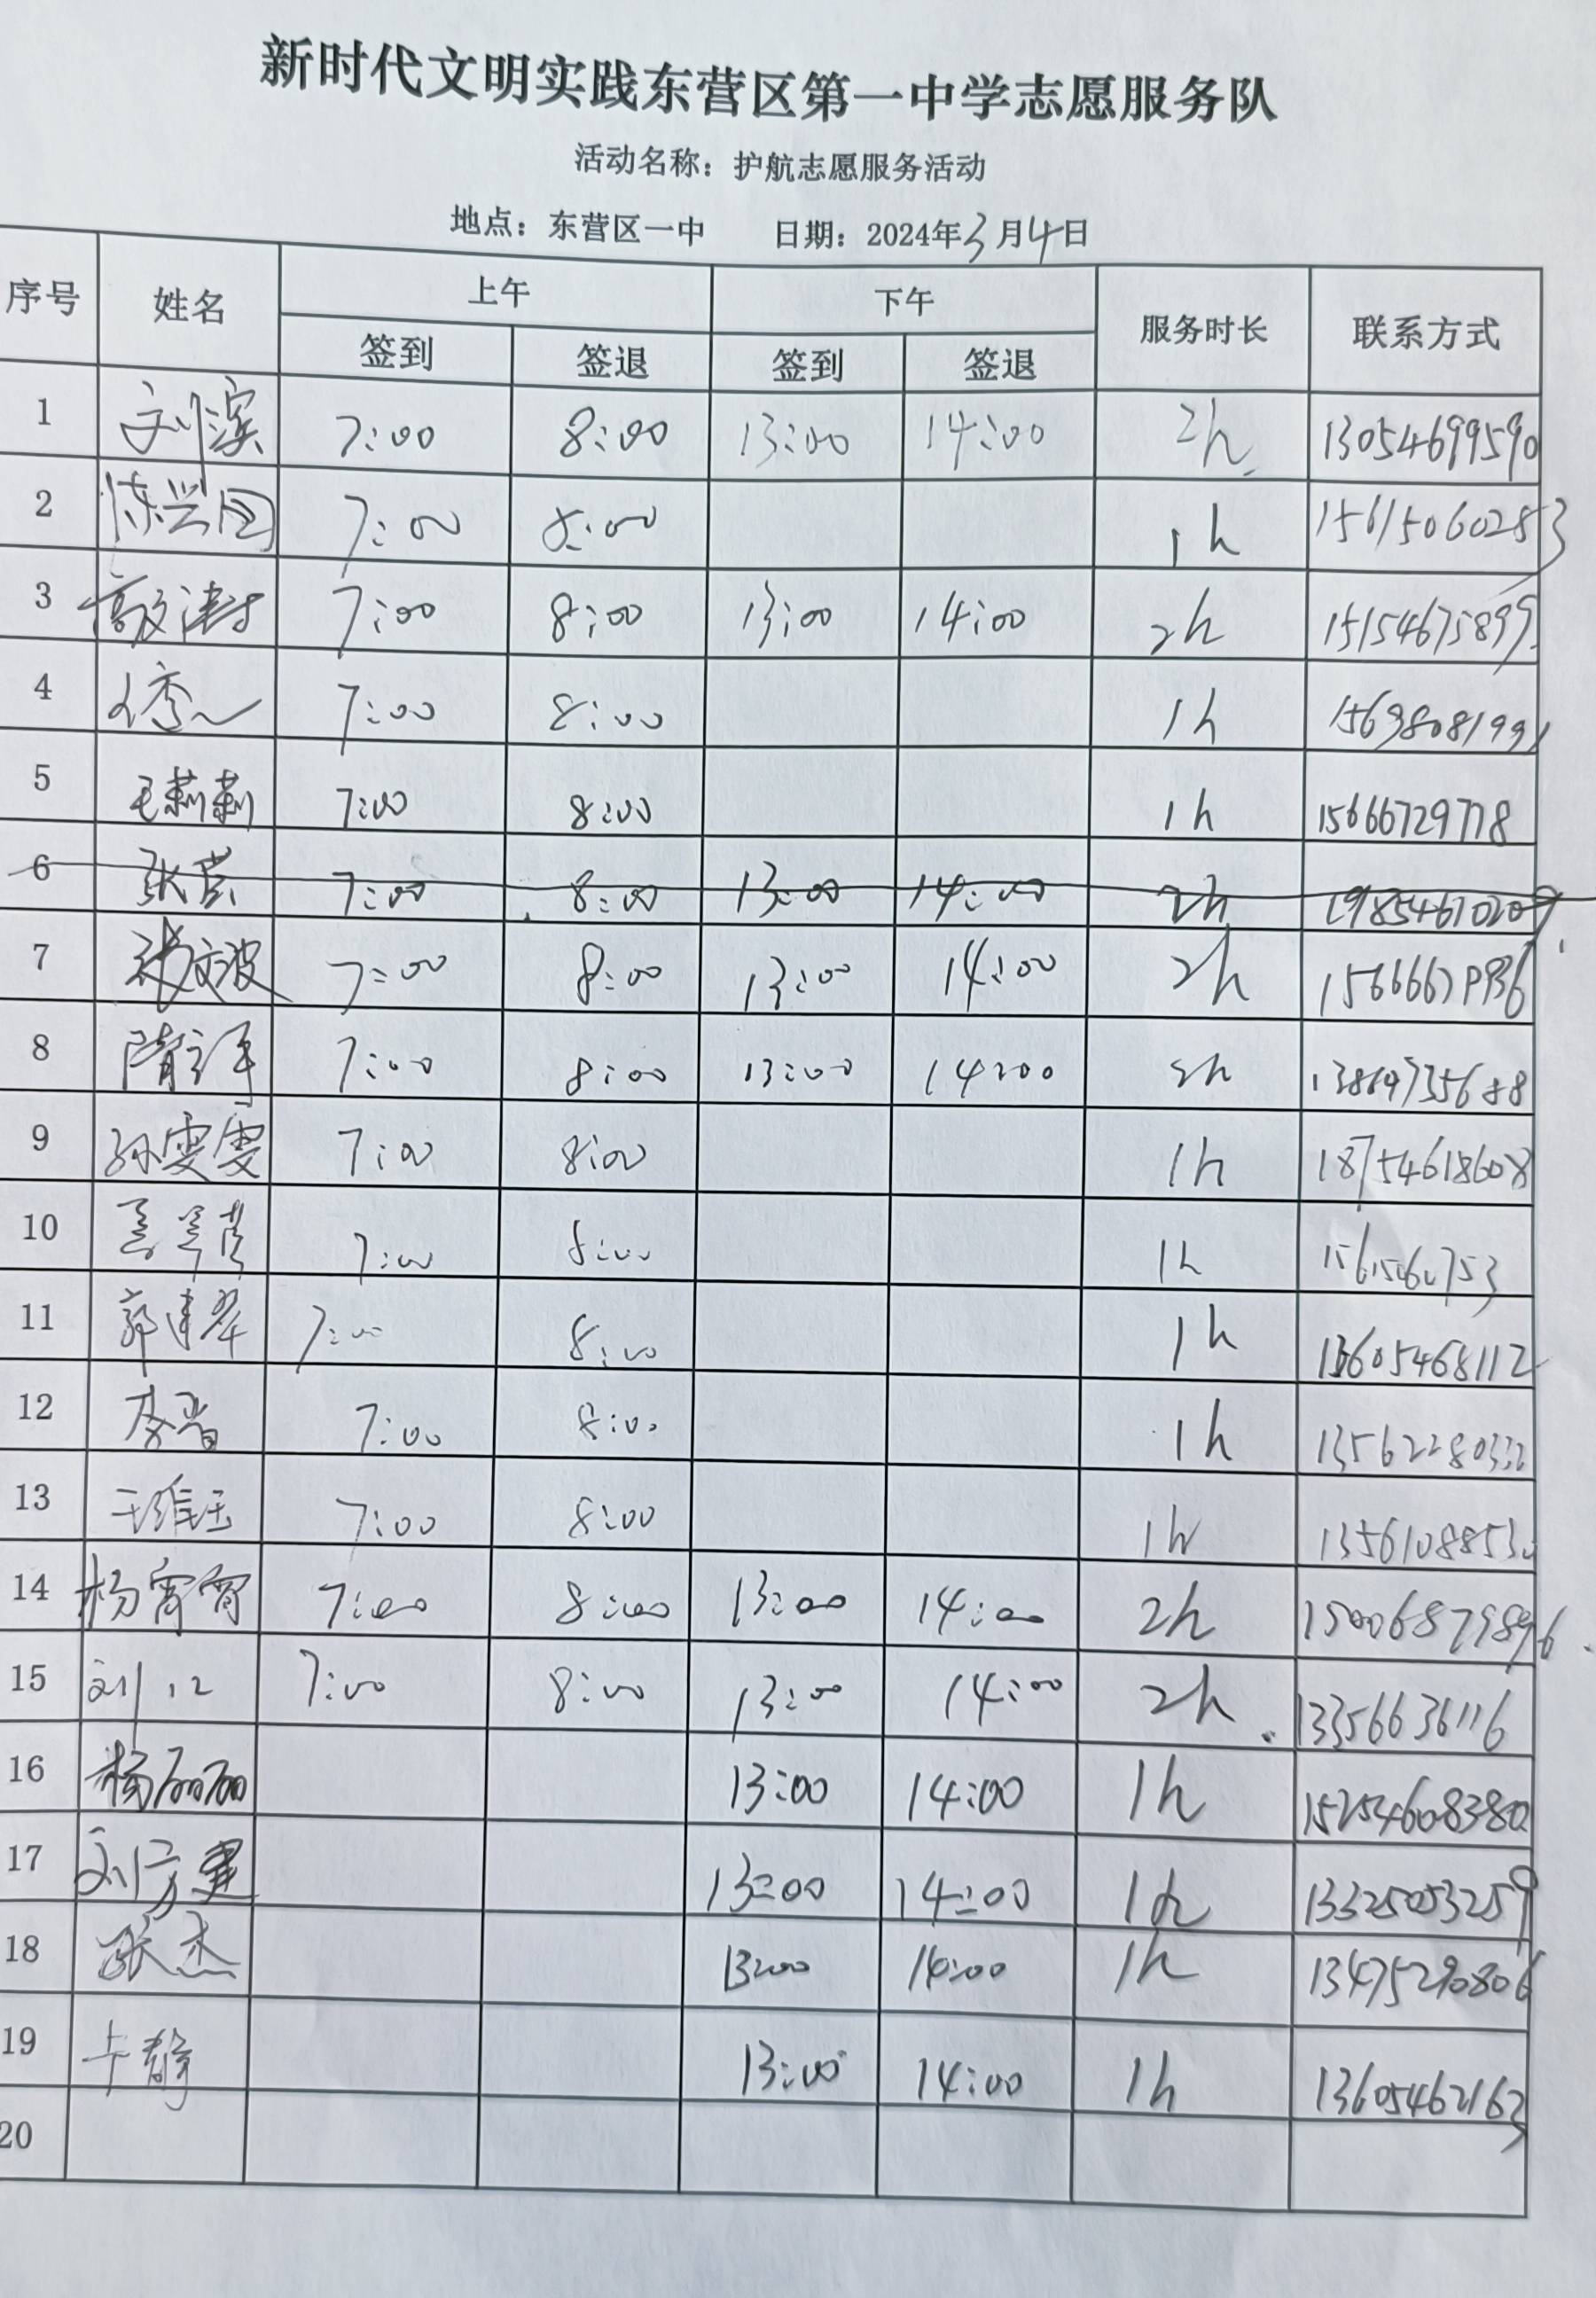 新时代文明实践东营区第一中学志愿服务队
活动名称：护航志愿服务活动
地点：东营区一中 日期：2024年3月4日
序号 姓名 上午 下午 服务时长 联系方式
签到 签退 签到 签退
1 刘滨 7:00 8:00 13:00 14:00 2h 13054699590
2 陈兴国 7:00 8:00 1h 15615060283
3 7:00 8:00 13:00 14:00 2h 15154675899
4 7:00 8:00 1h 15698081991
5 毛莉莉 7:00 8:00 1h 15666729778
6 7:00 8:00 13:00 14:00 2h 19854610209
7 张文波 7:00 8:00 13:00 14:00 2h
8 隋祥 7:00 8:00 13:00 14:00 2h
9 孙雯雯 7:00 8:00 1h 18754618608
10 7:00 8:00 1h
11 郭建翠 7:00 8:00 1h 13605468112
12 7:00 8:00 1h 13562280332
13 7:00 8:00 1h 13561088530
14 杨霄霄 7:00 8:00 13:00 14:00 2h 15006879896
15 刘江 7:00 8:00 13:00 14:00 2h 13356636116
16 杨丽丽 13:00 14:00 1h 15254608380
17 13:00 14:00 1h 13325053259
18 张杰 13:00 14:00 1h 13475290806
19 卜静 13:00 14:00 1h 13605462163
20